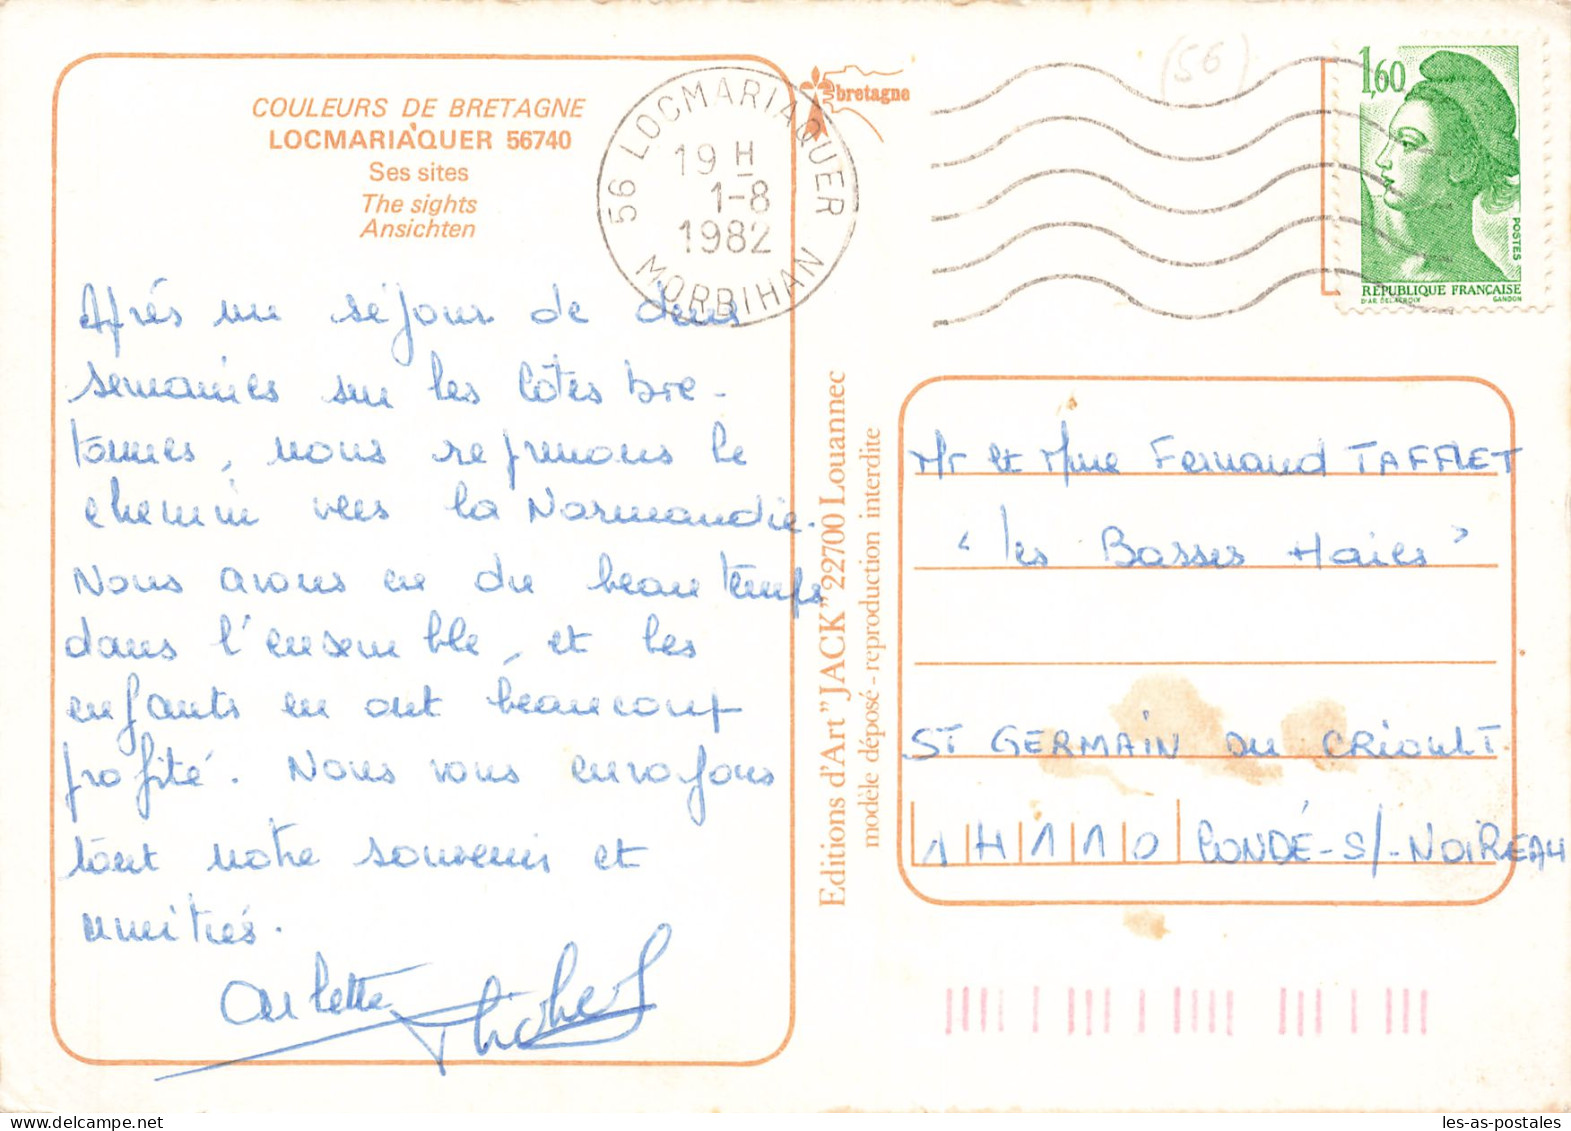 COULEURS DE BRETAGNE
LOCMARIAQUER 56740
Ses sites
The sights
Ansichten
Après un séjour de deux
semaines sur les côtes bre-
tonnes, nous reprenons le
chemin vers la Normandie.
Nous avons eu du beau temps
dans l'ensemble, et les
enfants en ont beaucoup
profité. Nous vous envoyons
tout notre souvenir et
amitiés.
Arlette
56 LOCMARIAQUER
19 H
1-8
1982
MORBIHAN
bretagne
(56)
1,60
POSTES
RÉPUBLIQUE FRANÇAISE
D'AP. DELACROIX GANDON
Editions d'Art "JACK" 22700 Louannec
modèle déposé - reproduction interdite
Mr et Mme Fernand TAFFLET
"les Basses Haies"
ST GERMAIN DU CRIOULT
14110 CONDÉ-S/-NOIREAU
les-as-postales